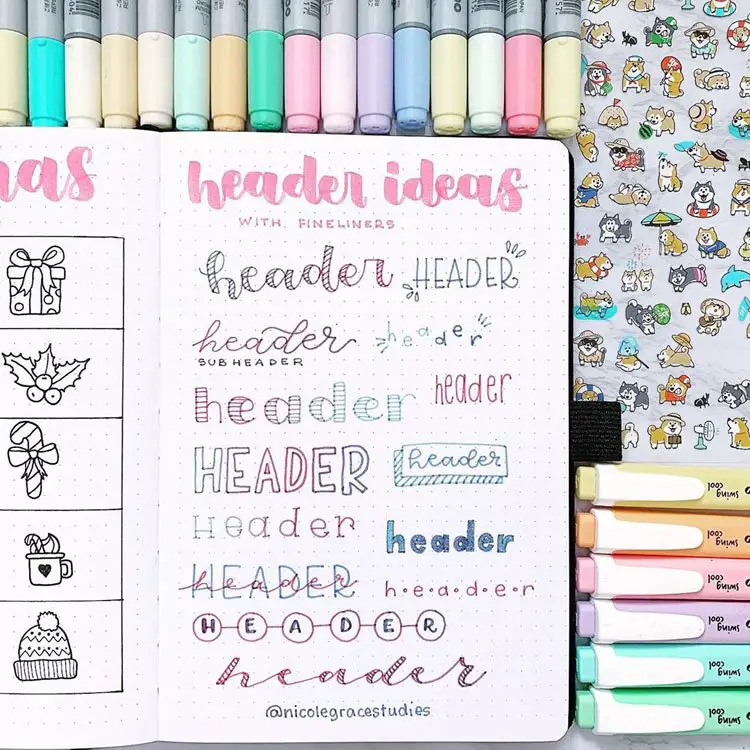 header ideas
WITH FINELINERS
header HEADER
header header
SUB HEADER
header header
HEADER header
Header header
HEADER header h·e·a·d·e·r
HEADER
header
@nicolegracestudies
swing cool
swing cool
swing cool
swing cool
swing cool
swing cool